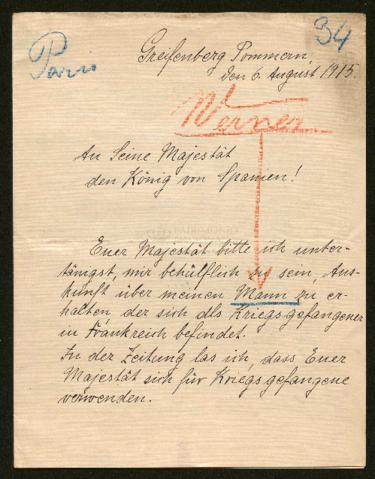 34
Paris
Greifenberg Pommern,
den 6. August 1915.
Werner
An Seine Majestät
den König von Spanien!
Euer Majestät bitte ich unter-
tänigst, mir behülflich zu sein, Aus-
kunft über meinen Mann zu er-
halten der sich als Kriegsgefangener
in Frankreich befindet.
In der Zeitung las ich, dass Euer
Majestät sich für Kriegsgefangene
verwenden.